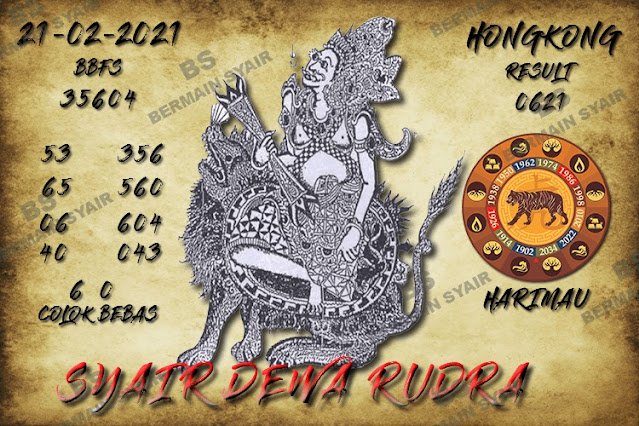 21-02-2021
BBFS
35604
53 356
65 560
06 604
40 043
6 0
COLOK BEBAS
HONGKONG
RESULT
0621
1962 1974 1986 1998 2010 2022 2034 1902 1914 1926 1938 1950
HARIMAU
SYAIR DEWA RUDRA
BS
BERMAIN SYAIR